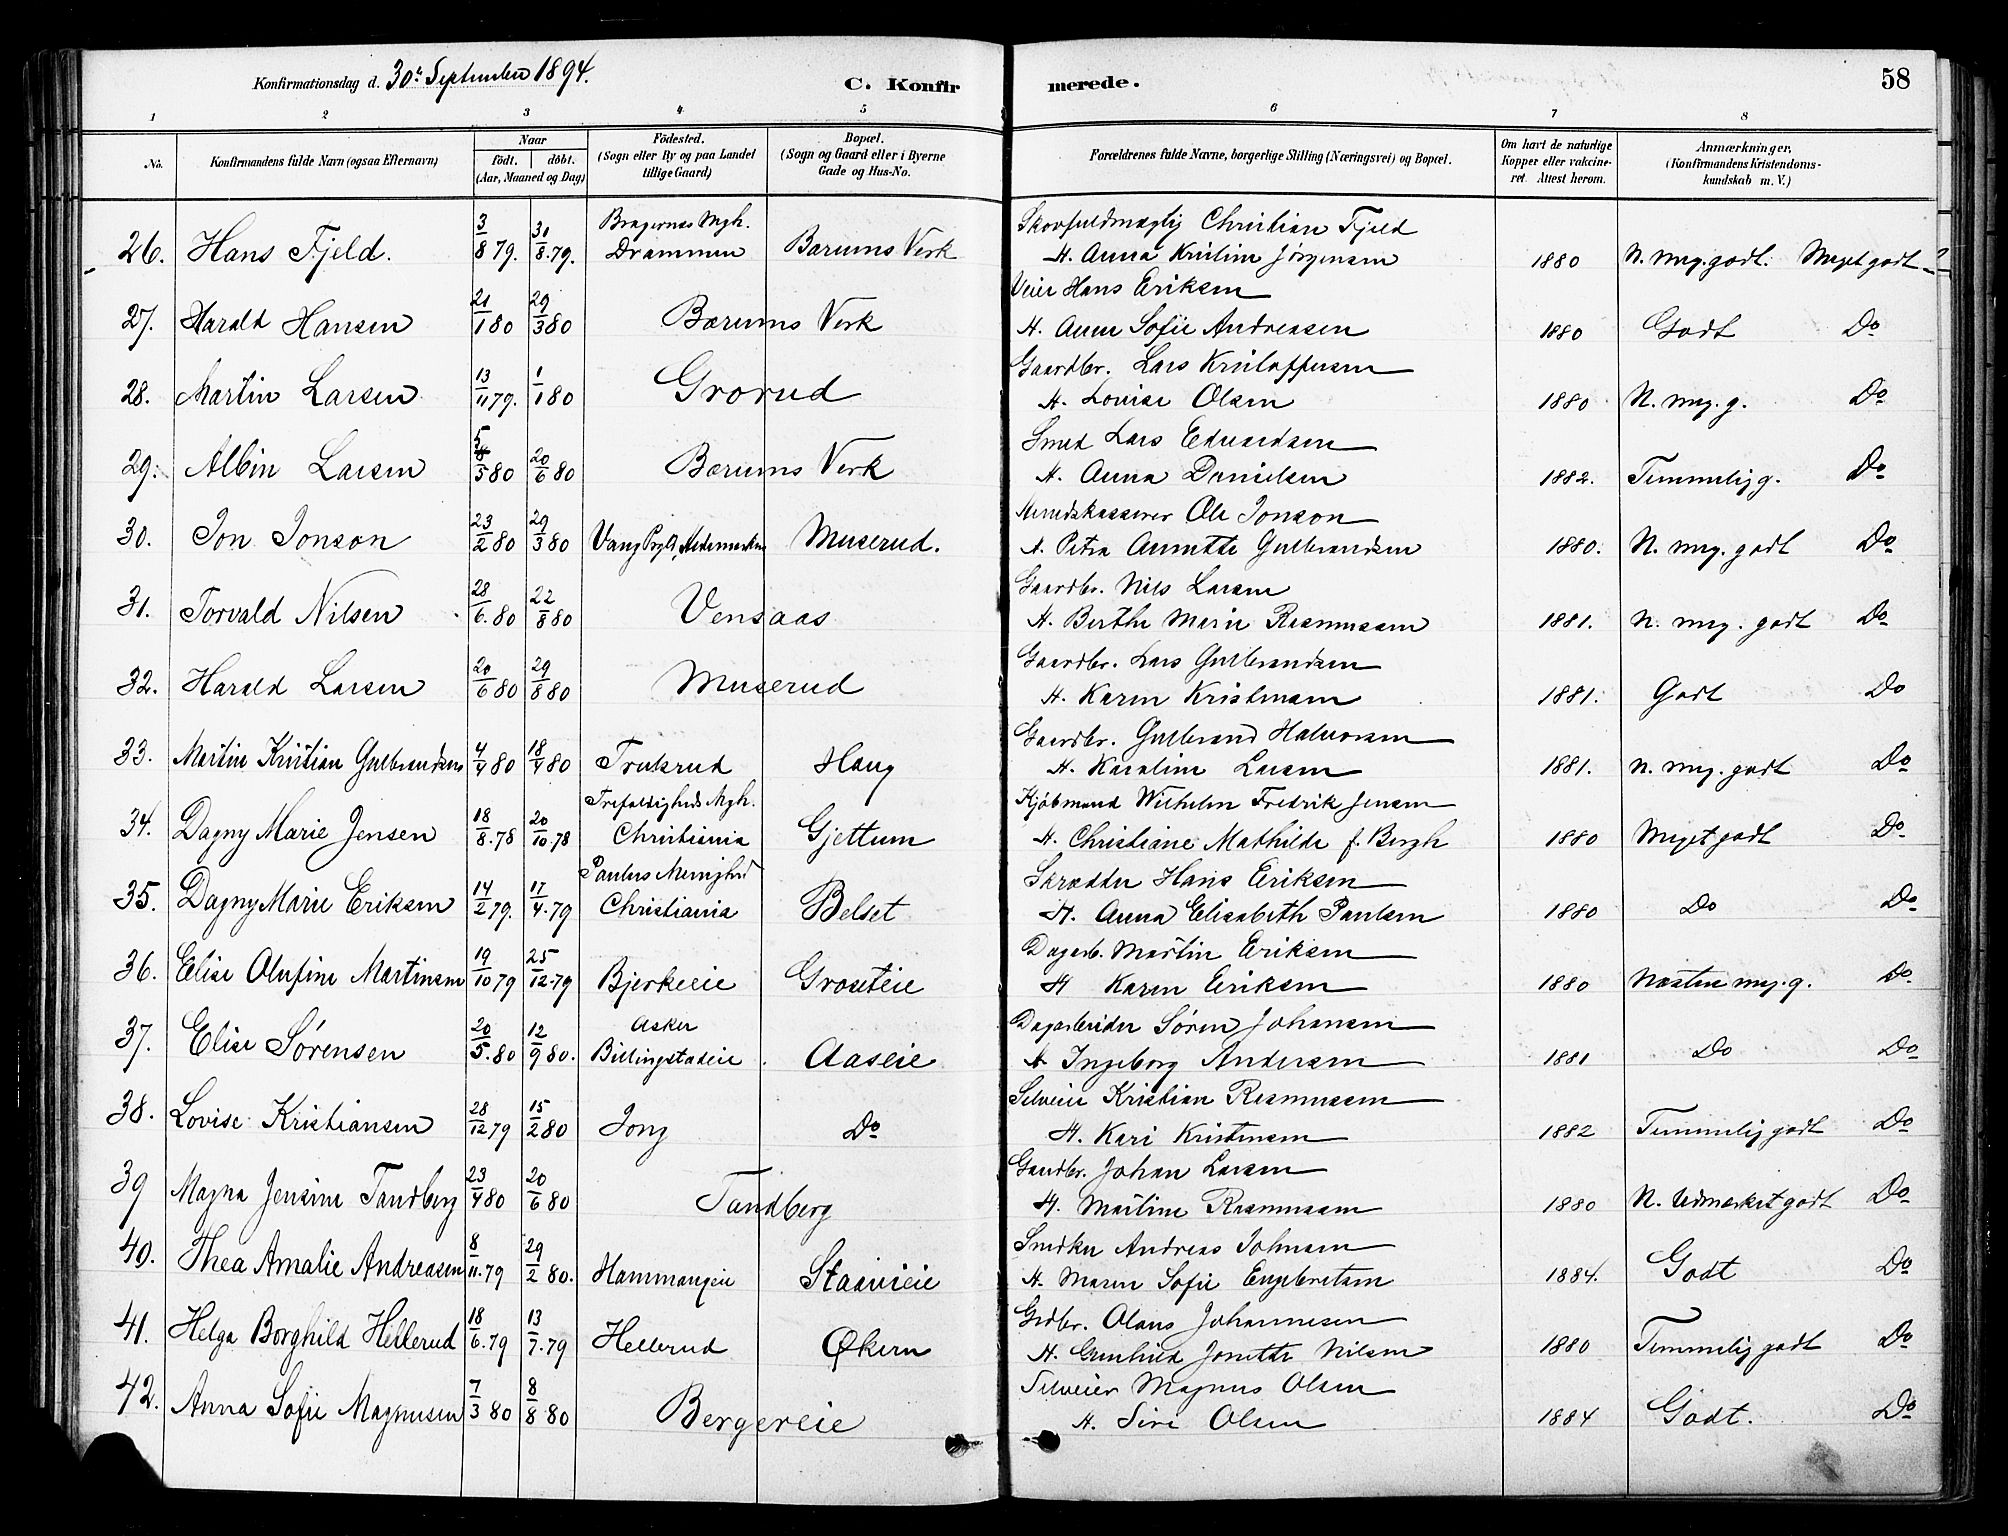 Konfirmationsdag d. 30te September 1894.
C. Konfirmerede.
58
1 2 3 4 5 6 7 8
No. Konfirmandens fulde Navn (ogsaa Efternavn) Naar födt. döbt. (Aar, Maaned og Dag) Födested. (Sogn eller By og paa Landet tillige Gaard) Bopæl. (Sogn og Gaard eller i Byerne Gade og Hus-No. Forældrenes fulde Navne, borgerlige Stilling (Næringsvei) og Bopæl. Om havt de naturlige Kopper eller vakcineret. Attest herom. Anmærkninger, (Konfirmandens Kristendomskundskab m. V.)
26. Hans Fjeld. 3/8 79. 31/8.79. Bragernæs Mgh. Drammen Bærums Verk Skovfuldmægtig Christian Fjeld H. Anna Kristine Jørgensen 1880 N. meg. godt. Meget godt
27. Harald Hansen 21/1 80 29/3 80 Bærums Verk Veier Hans Eriksen H. Anne Sofie Andreasen 1880 Godt Do
28. Martin Larsen 13/11 79. 1/1 80 Grorud Gaardbr. Lars Kristoffersen H. Lovise Olsen 1880 N. meg. g. Do
29. Albin Larsen 5/5 80 20/6 80 Bærums Verk Smed Lars Edvardsen H. Anna Danielsen 1882. Temmelig g. Do
30. Jon Jonson 23/2 80 29/3 80 Vang Prgld, Hedemarken Muserud. Herredskasserer Ole Jonson H. Petra Annette Gulbrandsen 1880. N. meg. godt Do
31. Torvald Nilsen 28/6. 80 22/8 80 Vensaas Gaardbr. Nils Larsen H. Berthe Marie Rasmussen 1881. N. meg. godt Do
32. Harald Larsen 20/6 80 29/8 80 Muserud Gaardbr. Lars Gulbrandsen H. Karen Kristensen 1881. Godt Do
33. Martin Kristian Gulbrandsen 4/4 80 18/4 80 Trulsrud Haug Gaardbr. Gulbrand Halvorsen H. Karoline Larsen 1881. N. meg. godt Do
34. Dagny Marie Jensen 18/8.78 20/10.78 Trefoldigheds Mgh. Christiania Gjettum Kjøbmand Wilhelm Fredrik Jensen H. Christiane Mathilde f. Bergh 1880 Meget godt Do
35. Dagny Marie Eriksen 14/2 79. 17/4.79 Paulus Menighed Christiania Belset Skrædder Hans Eriksen H. Anna Elisabeth Paulsen 1880 Do Do
36. Elise Olufine Martinsen 19/10 79 25/12.79 Bjerkeeie Groseteie Dagarb. Martin Eriksen H Karen Eriksen 1880 Næsten meg. g. Do
37. Elise Sørensen 20/5.80 12/9 80. Asker Billingstadeie Aaseie Dagarbeider Søren Johansen H Ingeborg Andersen 1881 Do Do
38. Lovise Kristiansen 28/12 79 15/2 80 Jong Do Selveier Kristian Rasmussen H. Kari Kristensen 1882 Temmelig godt Do
39 Magna Jensine Tandberg 23/4 80 20/6 80 Tandberg Gaardbr. Johan Larsen H. Martine Rasmussen 1880 N. Udmærket godt Do
40. Thea Amalie Andreasen 8/11.79 29/2 80. Hammangeie Staavieie Snedker Andreas Johnsen H. Maren Sofie Engebretsen 1884. Godt Do
41. Helga Borghild Hellerud 18/6.79 13/7.79 Hellerud Økern Grdbr. Olaus Johannesen H. Gunhild Jonette Nilsen 1880 Temmelig godt Do
42. Anna Sofie Magnusen 7/3 80 8/8 80 Bergereie Selveier Magnus Olsen H. Siri Olsen 1884 Godt. Do